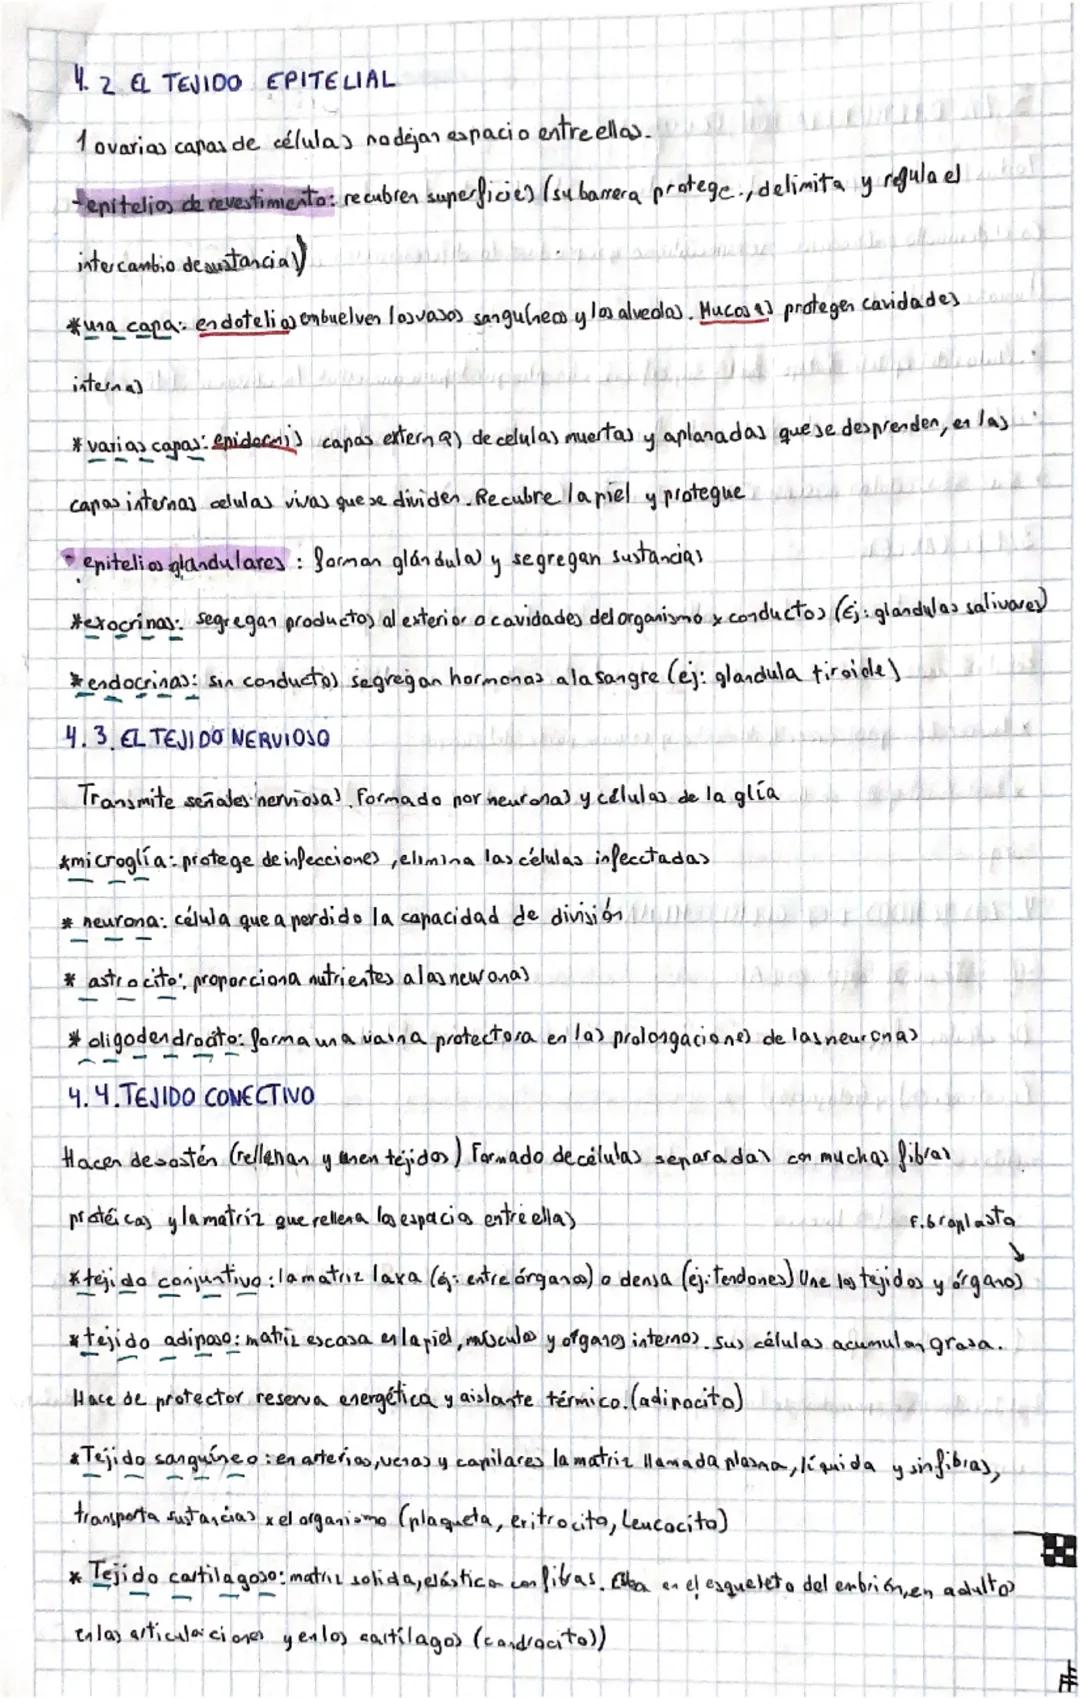 4.2 EL TEJIDO EPITELIAL
1 o varias capas de células no dejan espacio entre ellas.
-epitelios de revestimiento: recubren superficies (su barrera protege., delimita y regula el
intercambio de sustancias)
*una capa: endotelios embuelven los vasos sanguíneos y los alveolos. Mucosas protegen cavidades
internas
*varias capas: epidermis capas externas de celulas muertas y aplanadas que se desprenden, en las
capas internas celulas vivas que se dividen. Recubre la piel y protegue
- epitelios glandulares: forman glándulas y segregan sustancias
*exocrinas: segregan productos al exterior o cavidades del organismo x conductos (Ej: glandulas salivares)
*endocrinas: sin conductos segregan hormonas a la sangre (ej: glandula tiroide)
4.3. EL TEJIDO NERVIOSO
Transmite señales nerviosas. Formado por neuronas y células de la glía
*microglía: protege de infecciones, elimina las células infecctadas
* neurona: célula que a perdido la capacidad de división
* astrocito: proporciona nutrientes a las neuronas
* oligodendrocito: forma una vaina protectora en las prolongaciones de las neuronas
4.4. TEJIDO CONECTIVO
Hacen de sostén (rellenan y unen tejidos) Formado de células separadas con muchas fibras
protéicas y la matriz que rellena los espacios entre ellas
Fibroplasto
*tejido conjuntivo: la matriz laxa (ej: entre órganos) o densa (ej: tendones) Une los tejidos y órganos
*tejido adiposo: matriz escasa en la piel, músculos y organos internos. Sus células acumulan grasa.
Hace de protector reserva energética y aislante térmico. (adipocito)
*Tejido sanguíneo: en arterias, venas y capilares la matriz llamada plasma, líquida y sin fibras,
transporta sustancias x el organismo (plaqueta, eritrocito, leucocito)
* Tejido cartilagoso: matriz solida, elástica con fibras. en el esqueleto del embrión, en adultos
en las articulaciones y en los cartílagos (condrocito))